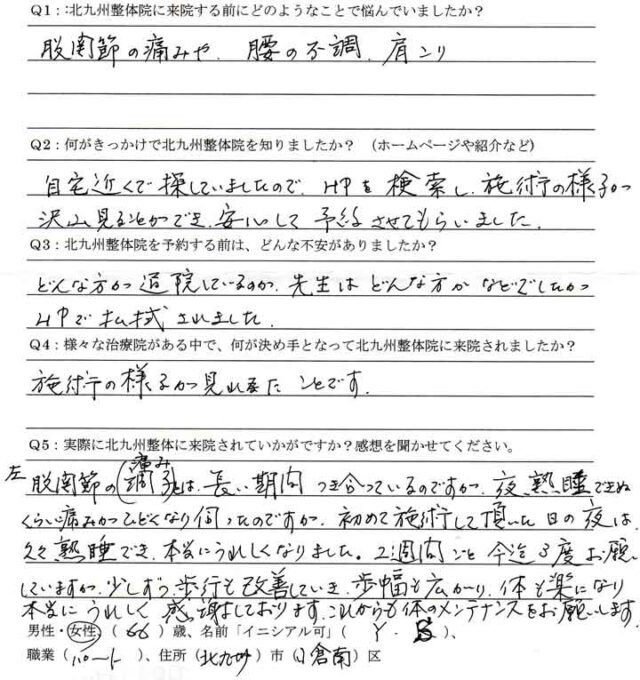 Q1：:北九州整体院に来院する前にどのようなことで悩んでいましたか？
股関節の痛みや、腰の不調、肩こり
Q2：何がきっかけで北九州整体院を知りましたか？ （ホームページや紹介など）
自宅近くで探していましたので、HPを検索し、施術の様子が
沢山見ることができ、安心して予約させてもらいました。
Q3：北九州整体院を予約する前は、どんな不安がありましたか？
どんな方が通院しているのか、先生はどんな方かなどでしたが
HPで払拭されました。
Q4：様々な治療院がある中で、何が決め手となって北九州整体院に来院されましたか？
施術の様子が見れたことです。
Q5：実際に北九州整体に来院されていかがですか？感想を聞かせてください。
左股関節の（痛み）とは、長い期間つき合っているのですが、夜、熟睡できぬ
くらい痛みがひどくなり伺ったのですが、初めて施術して頂いた日の夜は、
久々熟睡でき、本当にうれしくなりました。2週間ごと今迄3度お願い
していますが、少しずつ歩行も改善していき、歩幅も広がり、体も楽になり
本当にうれしく感謝しております。これからも体のメンテナンスをお願いします。
男性・女性（66）歳、名前「イニシアル可」（ Y．B ）、
職業（パート）、住所（北九州）市（小倉南）区